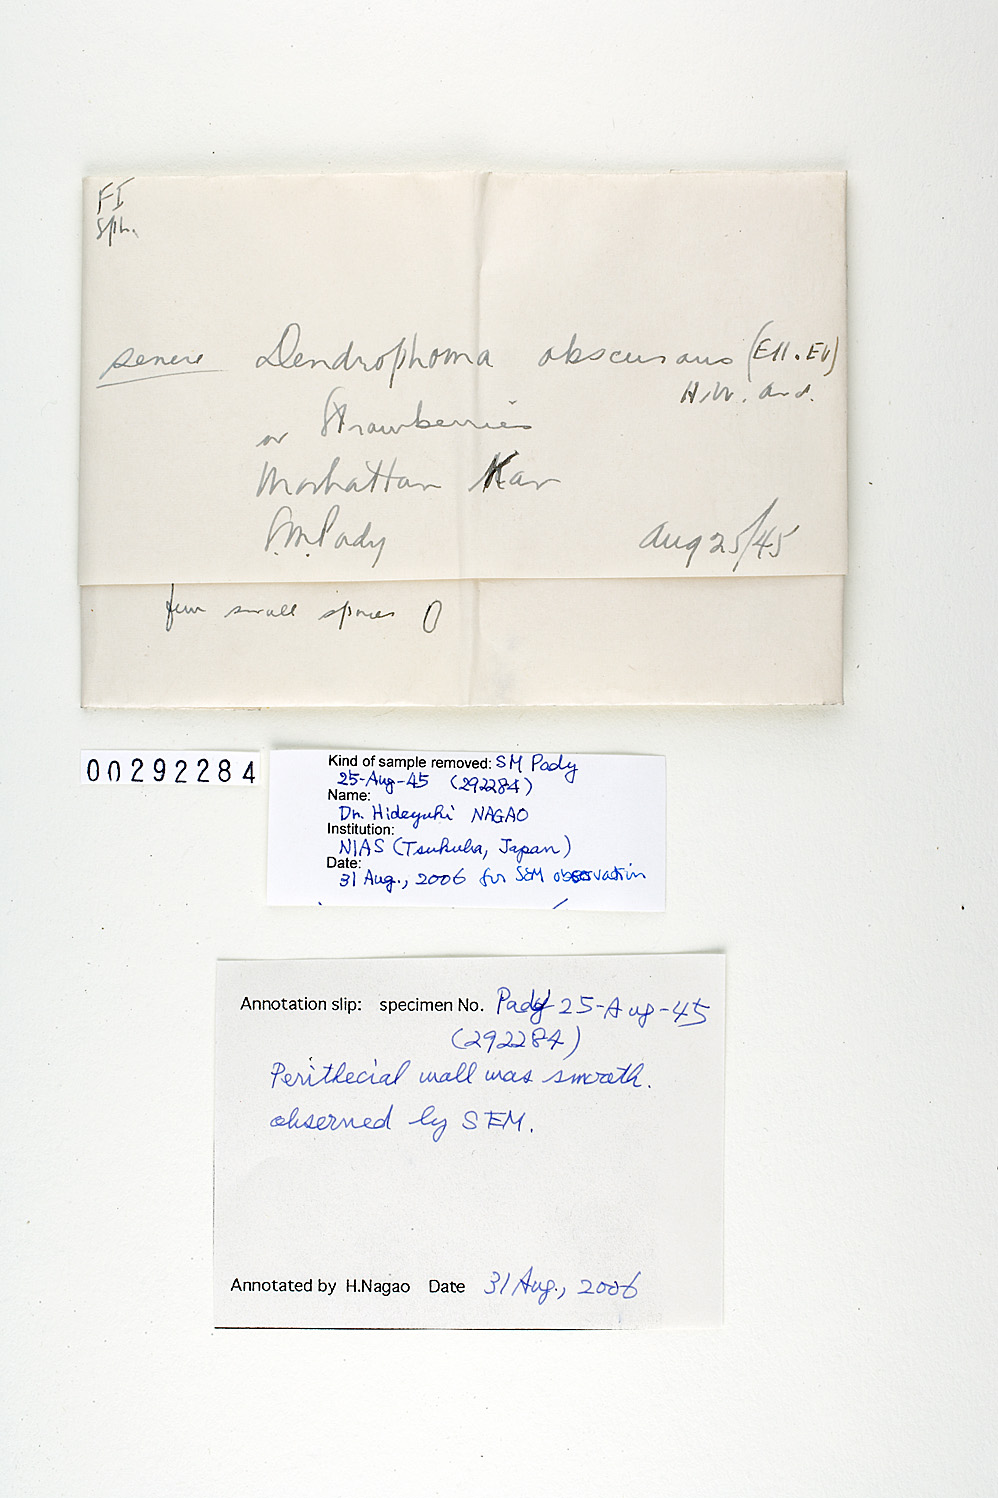 FI
Sph.
severe Dendrophoma obscurans (Ell. Ev)
H.W. And.
on Strawberries
Manhattan Kan
S.M. Pady Aug 25/45
few small spores 0
00292284
Kind of sample removed: SM Pady
25-Aug-45 (292284)
Name:
Dr. Hideyuki NAGAO
Institution:
NIAS (Tsukuba, Japan)
Date:
31 Aug., 2006 for SEM observation
Annotation slip: specimen No. Pady 25-Aug-45
(292284)
Perithecial wall was smooth.
observed by SEM.
Annotated by H.Nagao Date 31 Aug., 2006